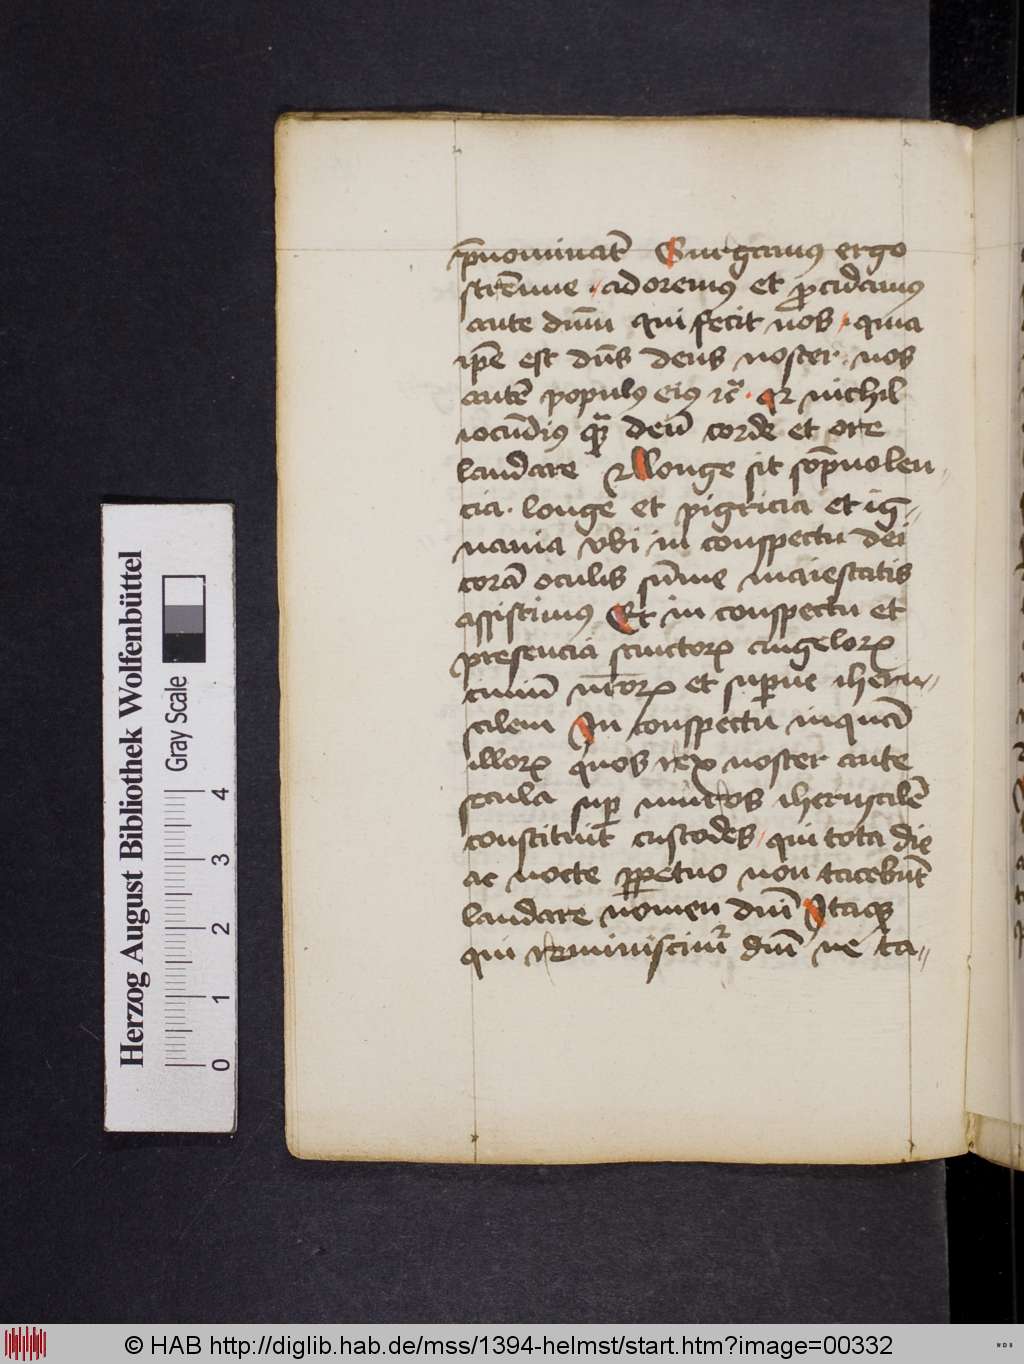 p̄nominat᷑ Surgamus ergo
strēnue adoremus et ꝓcidamus
ante dūm qui fecit nos quia
ip̄e est dn̄s deus noster nos
autē populus eius ⁊c̄ qr nichil
iocūdius qͣ deū corde et ore
laudare ⁊ Longe sit sop̄nolen
cia longe et pigricia et ig-
nauia vbi in conspectu dei
corā oculis sūme maiestatis
assistimus Et in conspectu et
presencia sanctorꝝ angelorꝝ
ciuiū nr̄orꝝ et supne iheru-
salem In conspectu inquā
illorꝝ quos rex noster ante
secula sup muros iherusalē
constituit custodes qui tota die
ac nocte ꝑpetuo non tacebūt
laudare nomen dn̄i Itaqꝫ
qui reminiscimr dn̄i ne ta-
Herzog August Bibliothek Wolfenbüttel
Gray Scale
0 1 2 3 4
© HAB http://diglib.hab.de/mss/1394-helmst/start.htm?image=00332